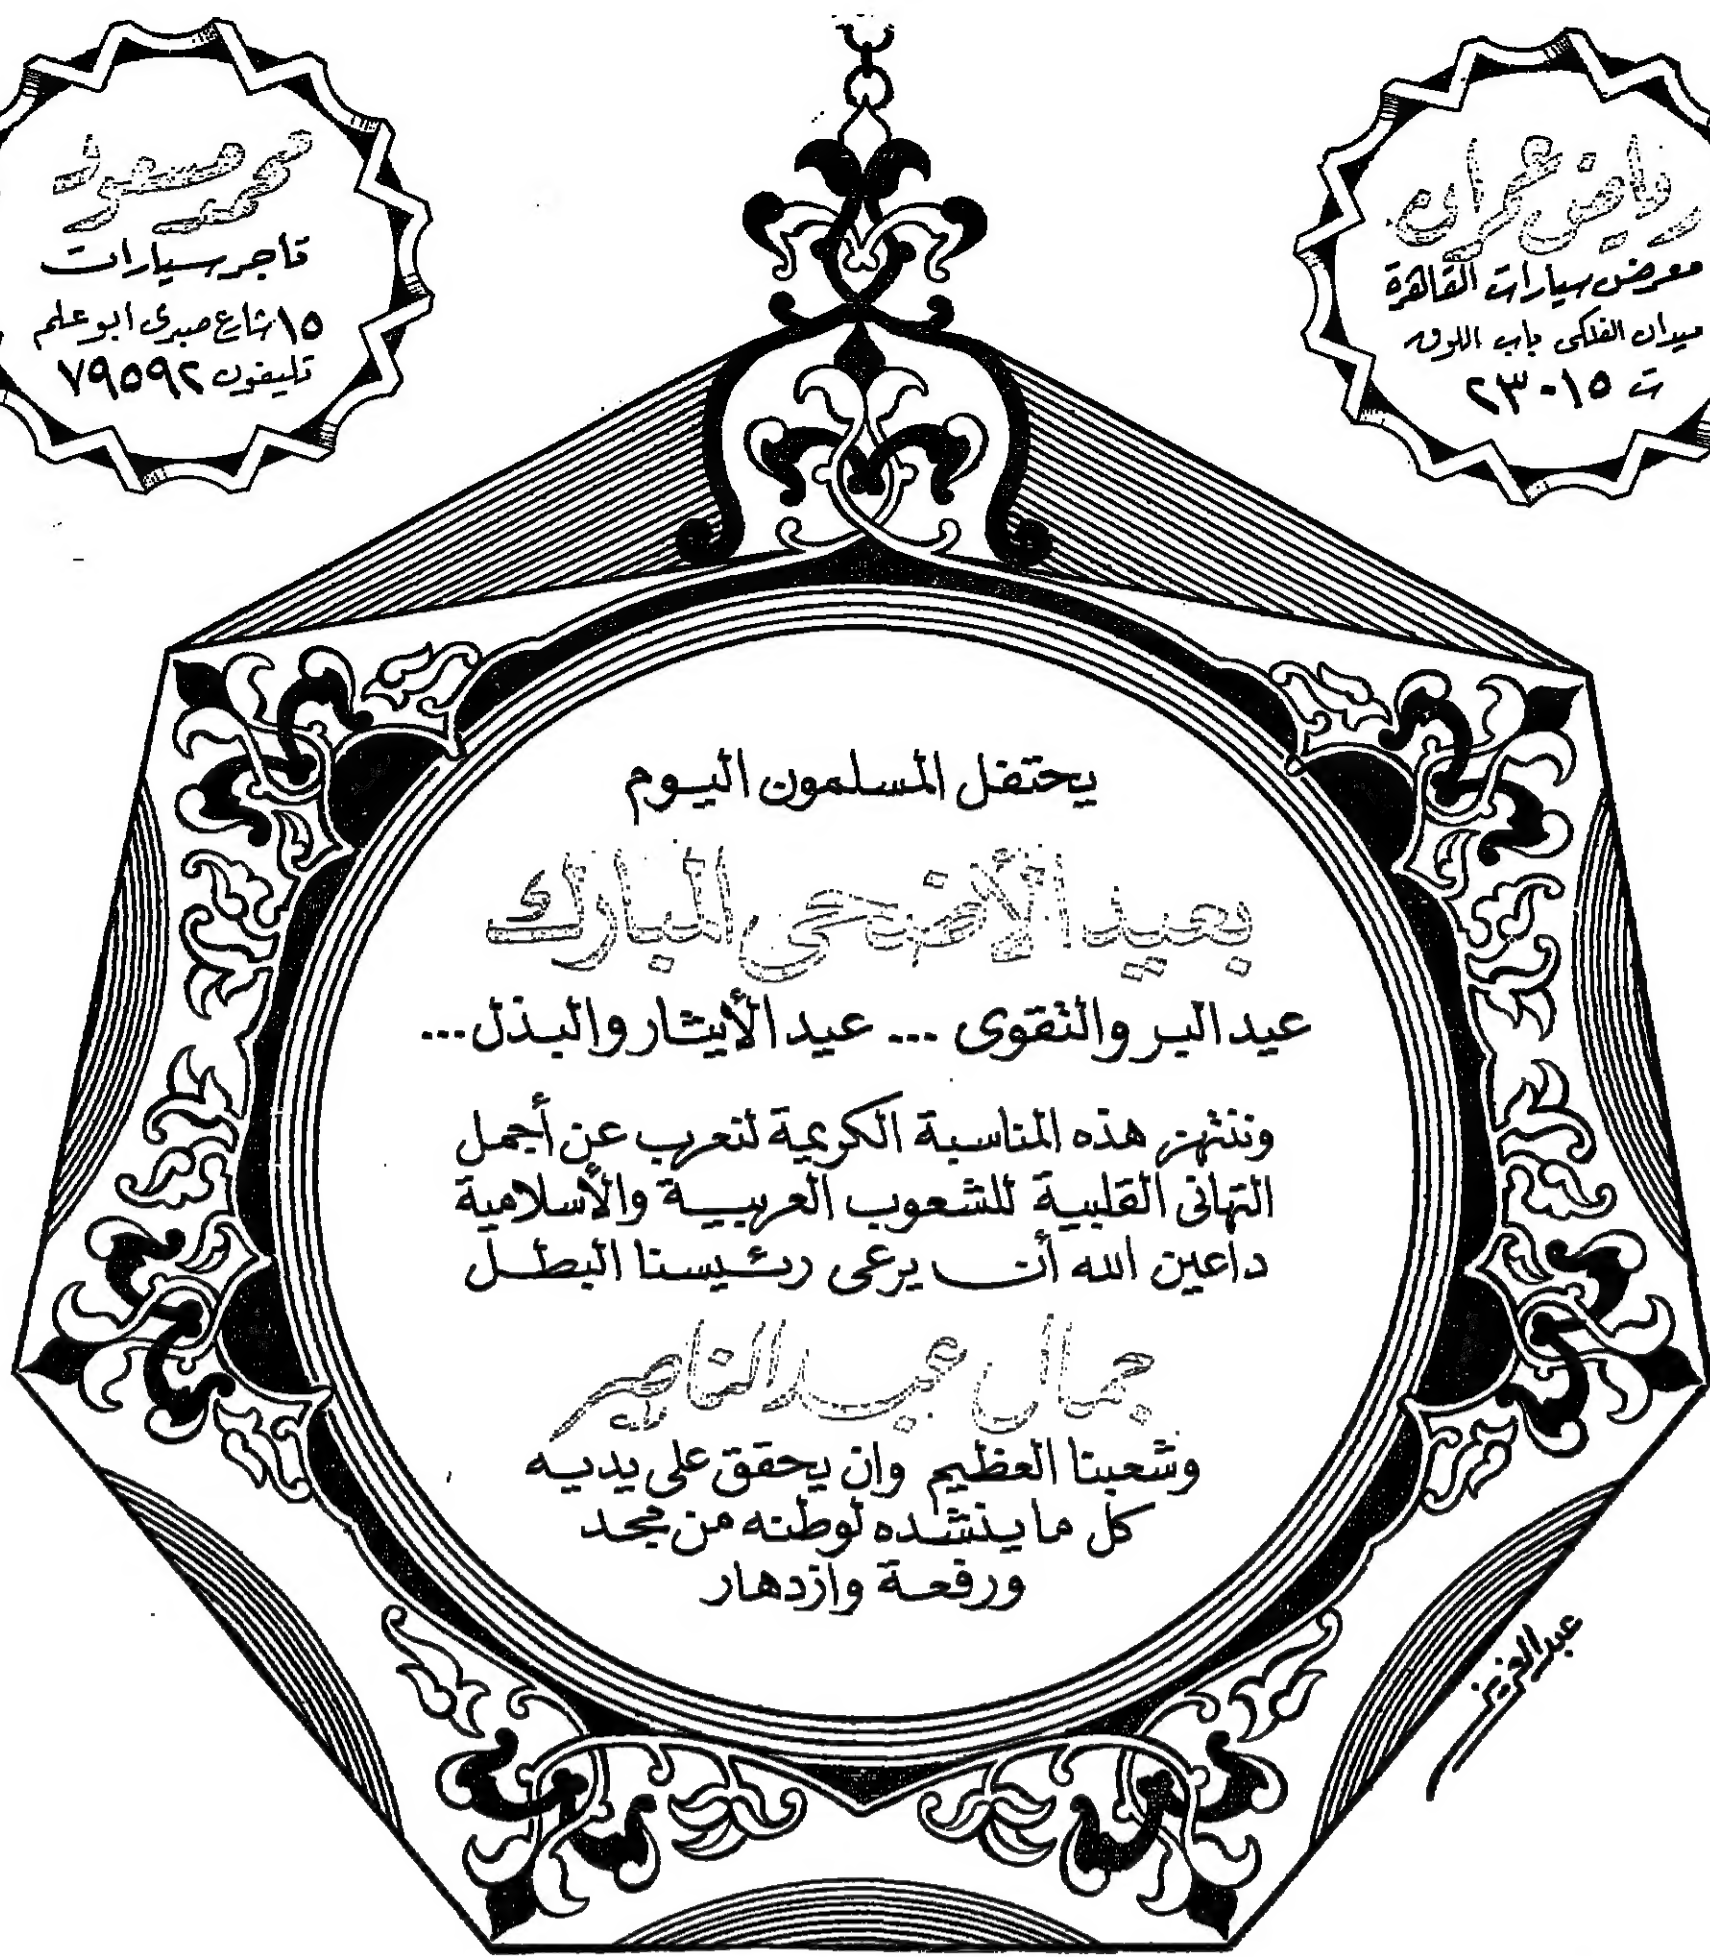 رياض عمران
معرض سيارات القاهرة
ميدان الفلكى باب اللوق
ت ١٥-٢٣
محمد مسعود
تاجر سيارات
١٥ شارع صبرى ابو علم
تليفون ٧٩٥٩٢
يحتفل المسلمون اليوم
بعيد الأضحى المبارك
عيد البر والتقوى ... عيد الأيثار والبذل ...
وننتهز هذه المناسبة الكريمة لنعرب عن أجمل
التهانى القلبية للشعوب العربية والأسلامية
داعين الله أن يرعى رئيسنا البطل
جمال عبد الناصر
وشعبنا العظيم وان يحقق على يديه
كل ما ينشده لوطنه من مجد
ورفعة وازدهار
عبد العزيز